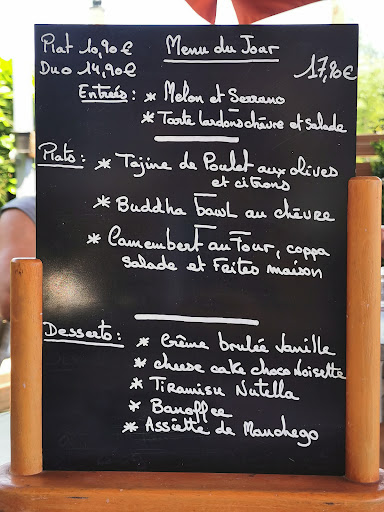 Plat 10,90€ Menu du Jour
Duo 14,90€ 17,90€
Entrées : * Melon et Serrano
* Tarte lardons chèvre et salade
Plats : * Tajine de Poulet aux olives
et citrons
* Buddha bowl au chèvre
* Camembert au Four, coppa
salade et Frites maison
Desserts : * Crème brulée Vanille
* cheese cake choco Noisette
* Tiramisu Nutella
* Banoffee
* Assiette de Manchego